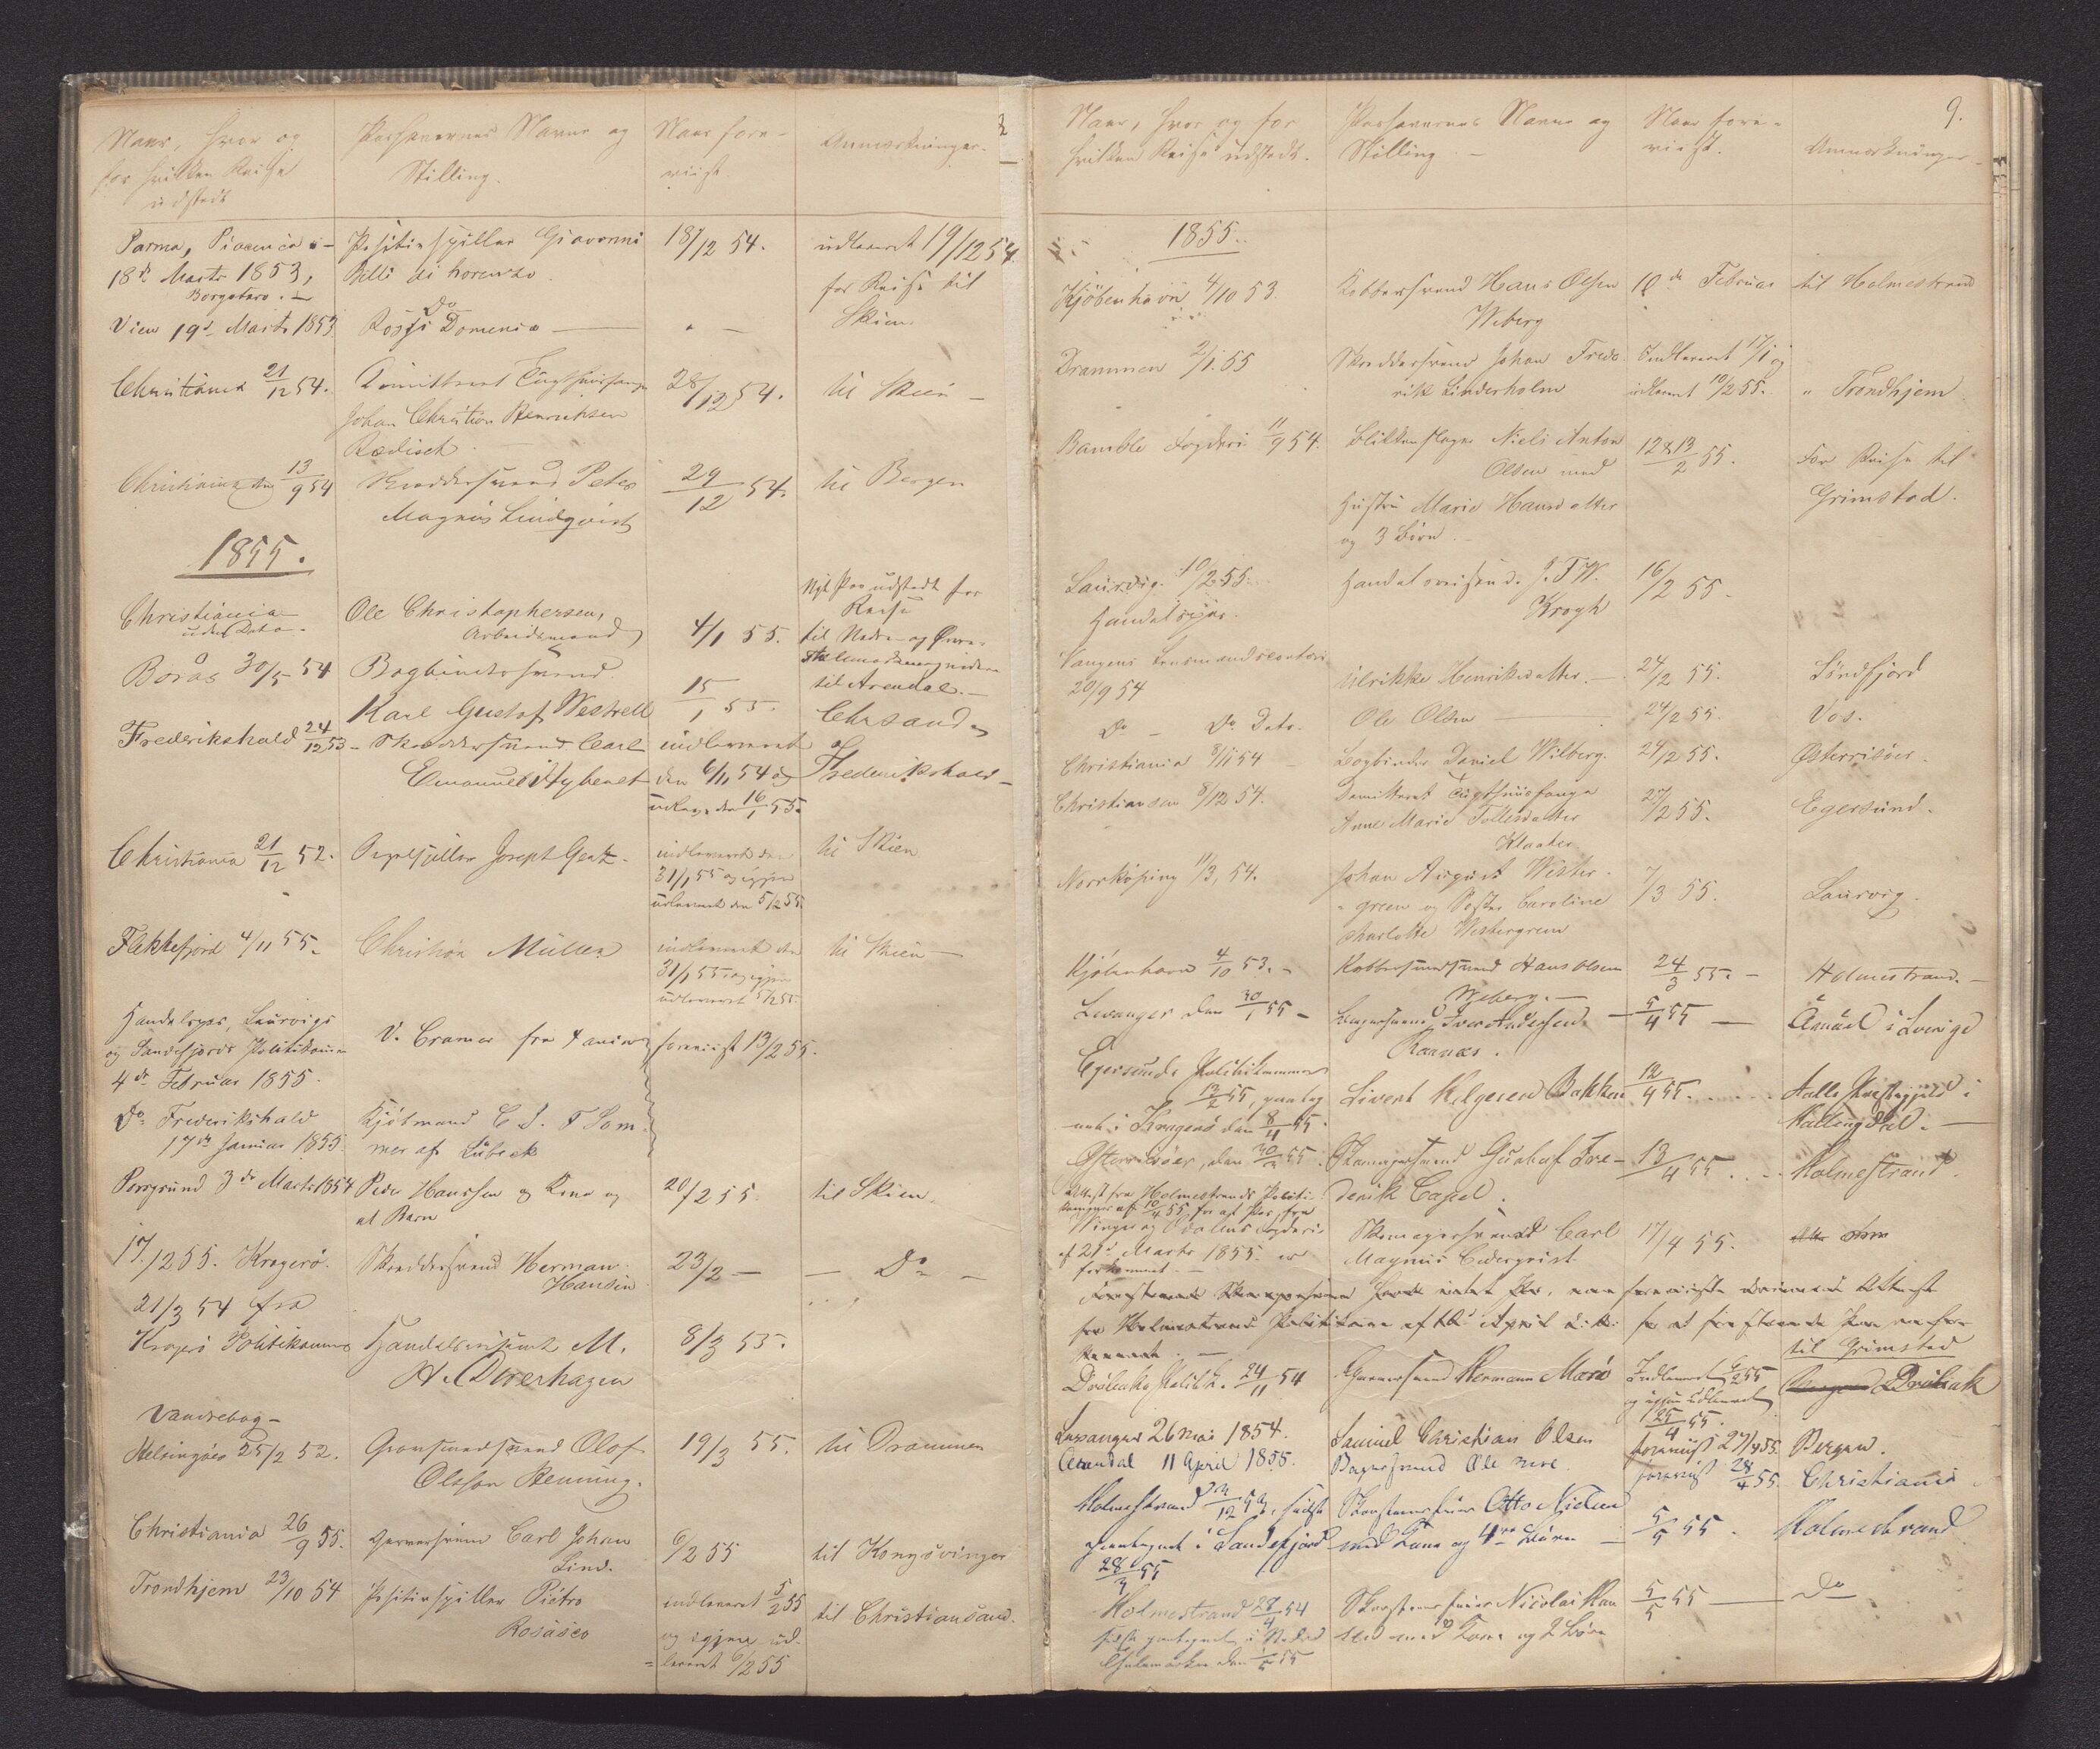 Naar, hvor og
for hvilken Reise
udstedt
Passhavernes Navne og
Stilling.
Naar fore-
viist.
Anmærkninger.
Parma, Piacenza
18de Marts 1853,
Borgotaro.
Positivspiller Giovanni
Belli di Lorenzo
18/12 54.
udleveret 19/12 54
for Reise til
Skien
Wien 19de Marts 1853
Do
Rossi Domenico
Christiania 21/12 54.
Dimitteret Tugthuusfange
Johan Christian Henriksen
Rædisch
28/12 54.
til Skien
Christiania den 13/9 54
Skræddersvend Peter
Magnus Lindqvist
29/12 54.
til Bergen
1855.
Christiania
uden Dato.
Ole Christophersen,
Arbeidsmand
4/1 55.
Nyt Pas udstedt for
Reise
til Nedre- og Øvre-
Thelemarken
Borås 30/5 54
Bogbindersvend
Karl Gustaf Westrell
15/1 55.
til Arendal.
Chrsand
Frederikshald 24/12 53
Skræddersvend Carl
Emanuel Nybenet
indleveret
den 6/11 54 og
udlev. den 16/1 55.
af
Frederikshald
Christiania 21/12 52.
Orgelspiller Joseph Gentz.
indleveret den
31/1 55 og igjen
udleveret den 5/2 55.
til Skien
Flekkefjord 4/11 55.
Christian Müller
indleveret den
31/1 55 og igjen
udleveret 5/2 55
til Skien
Handelspas, Laurvigs
og Sandefjords Politikam
4de Februar 1855.
V. Cramer fra
foreviist 13/2 55.
Do Frederikshald
17de Januar 1855.
Kjøbmand C. J. F. Som
mer af Lübeck
Porsgrund 3de Marts 1854
Peder Hanssen og Kone og
et Barn
20/2 55.
til Skien.
17/2 55. Kragerø.
Skræddersvend Herman
Hansen
23/2
Do
21/3 54 fra
Kragerø Politikammer
Handelsreisende M.
H. Dverhagen
8/3 55.
Vandrebog
Helsingøer 25/2 52.
Olof
Olsson Henning.
19/3 55.
til Drammen
Christiania 26/9 55.
Garversvend Carl Johan
Lind.
6/2 55
til Kongsvinger
Trondhjem 23/10 54
Positivspiller Pietro
Rosasco
indleveret 5/2 55
og igjen ud-
leveret 6/2 55
til Christiansand.
9.
Naar, hvor og for
hvilken Reise udstedt.
Passhavernes Navne og
Stilling.
Naar fore-
viist.
Anmærkninger
1855.
Kjøbenhavn 4/10 53.
Kobbersvend Hans Olsen
Weberg
10de Februar
til Holmestrand
Drammen 2/1. 55
Skræddersvend Johan Frede
rik Linderholm
Indleveret 17/1 og
udleveret 10/2 55.
" Trondhjem.
Bamble Fogderi 11/9 54.
Blikkenslager Niels Anton
Olsen med
Hustru Marie Hansdatter
og 3 Børn.
12 & 13/2 55.
For Reise til
Grimstad.
Laurvig. 10/2 55.
Handelspas.
Handelsreisende J. F. W.
Krogh
16/2 55.
Vangens Lensmandscontoir
20/9 54
Ulrikke Henriksdatter.
24/2 55.
Søndfjord
Do Do Dato.
Ole Olsen
24/2 55.
Vos.
Christiania 8/11 54
Bogbinder Daniel Wilberg.
24/2 55.
Østerrisøer.
Christiansand 8/12 54.
Dimitteret Tugthuusfange
Anne Marie Tollevsdatter
Klaaker.
27/2 55.
Egersund.
Norrköping 11/3, 54.
Johan August Wester-
green og Søster Caroline
Charlotte Westergreen
7/3 55.
Laurvig.
Kjøbenhavn 4/10 53.
Kobbersmedsvend Hans Olsen
Weberg.
24/3 55.
Holmestrand.
Levanger den 30/1 55
Iver Andersen
Raanæs.
5/4 55
i Sverige
Egersunds Politikammer
13/2 55, paateg
net i Kragerø den 8/4 55.
Sivert Helgesen Bakken
12/4 55.
Aals Præstegjeld i
Hallingdal.
Østerrisøer, den 30/3 55.
Skomagersvend Gustaf Fre-
derik Capel.
13/4 55
Holmestrand.
Attest fra Holmestrands Politi-
kammer af 10/4 55 for at Pas fra
Winger og Odalens Fogderi
af 21de Marts 1855 er
forkommet.
Skomagersvend Carl
Magnus Cederqvist.
17/4 55.
Drøbaks Politik. 24/11 54
Garversvend Hermann Marö
Indleveret 6/2 55
og igjen udleveret
25/4 55.
til Grimstad
Drøbak
Levanger 26 Mai 1854.
Samuel Christian Olsen
foreviist 27/4 55.
Bergen.
Arendal 11 April 1855.
Bagersvend Ole
foreviist 28/4 55.
Christiania
Holmestrand
paategnet i Sandefjord
28/4 55
Skorsteensfeier Otto Nielsen
med Kone og 4re Børn
5/5 55.
Holmestrand
Holmestrand 28/4 54
sidst paategnet i Nedre
Thelemarken den 1/5 55
Skorsteensfeier Nicolai Han
sen med Kone og 2 Børn
5/5 55
Do